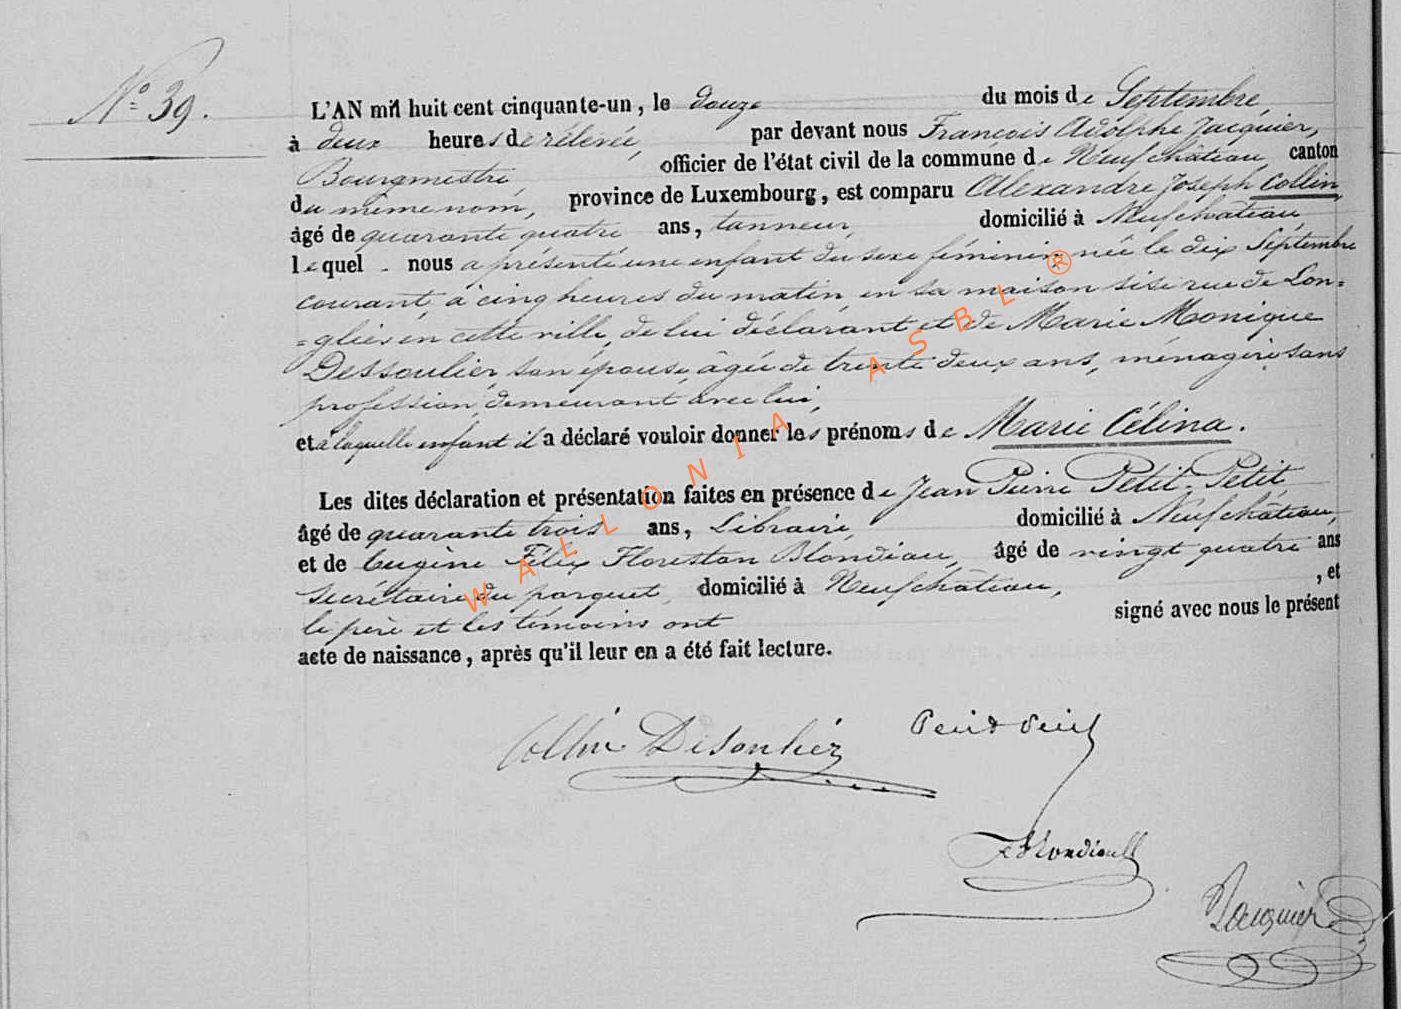 N° 39.
L'AN mil huit cent cinquante-un, le douze du mois de Septembre,
à deux heures de rélevée, par devant nous François Adolphe Jacquier,
Bourgmestre, officier de l'état civil de la commune de Neufchâteau, canton
du même nom, province de Luxembourg, est comparu Alexandre Joseph Collin,
âgé de quarante quatre ans, tanneur, domicilié à Neufchâteau,
lequel nous a présenté une enfant du sexe féminin, née le dix Septembre
courant, à cinq heures du matin, en sa maison sise rue de Lon=
=glier en cette ville, de lui déclarant et de Marie Monique
Dessoulier, son épouse, âgée de trente deux ans, ménagère, sans
profession, demeurant avec lui,
et à laquelle enfant il a déclaré vouloir donner les prénoms de Marie Célina.
Les dites déclaration et présentation faites en présence de Jean Pierre Petit-Petit
âgé de quarante trois ans, Libraire, domicilié à Neufchâteau,
et de Eugène Félix Floreston Blondiau, âgé de vingt quatre ans
Secrétaire du parquet, domicilié à Neufchâteau, , et
le père et les témoins ont signé avec nous le présent
acte de naissance, après qu'il leur en a été fait lecture.
Collin Desouliez Petit Petit
F Blondiau
Jacquier
WALLONIA ASBL ®